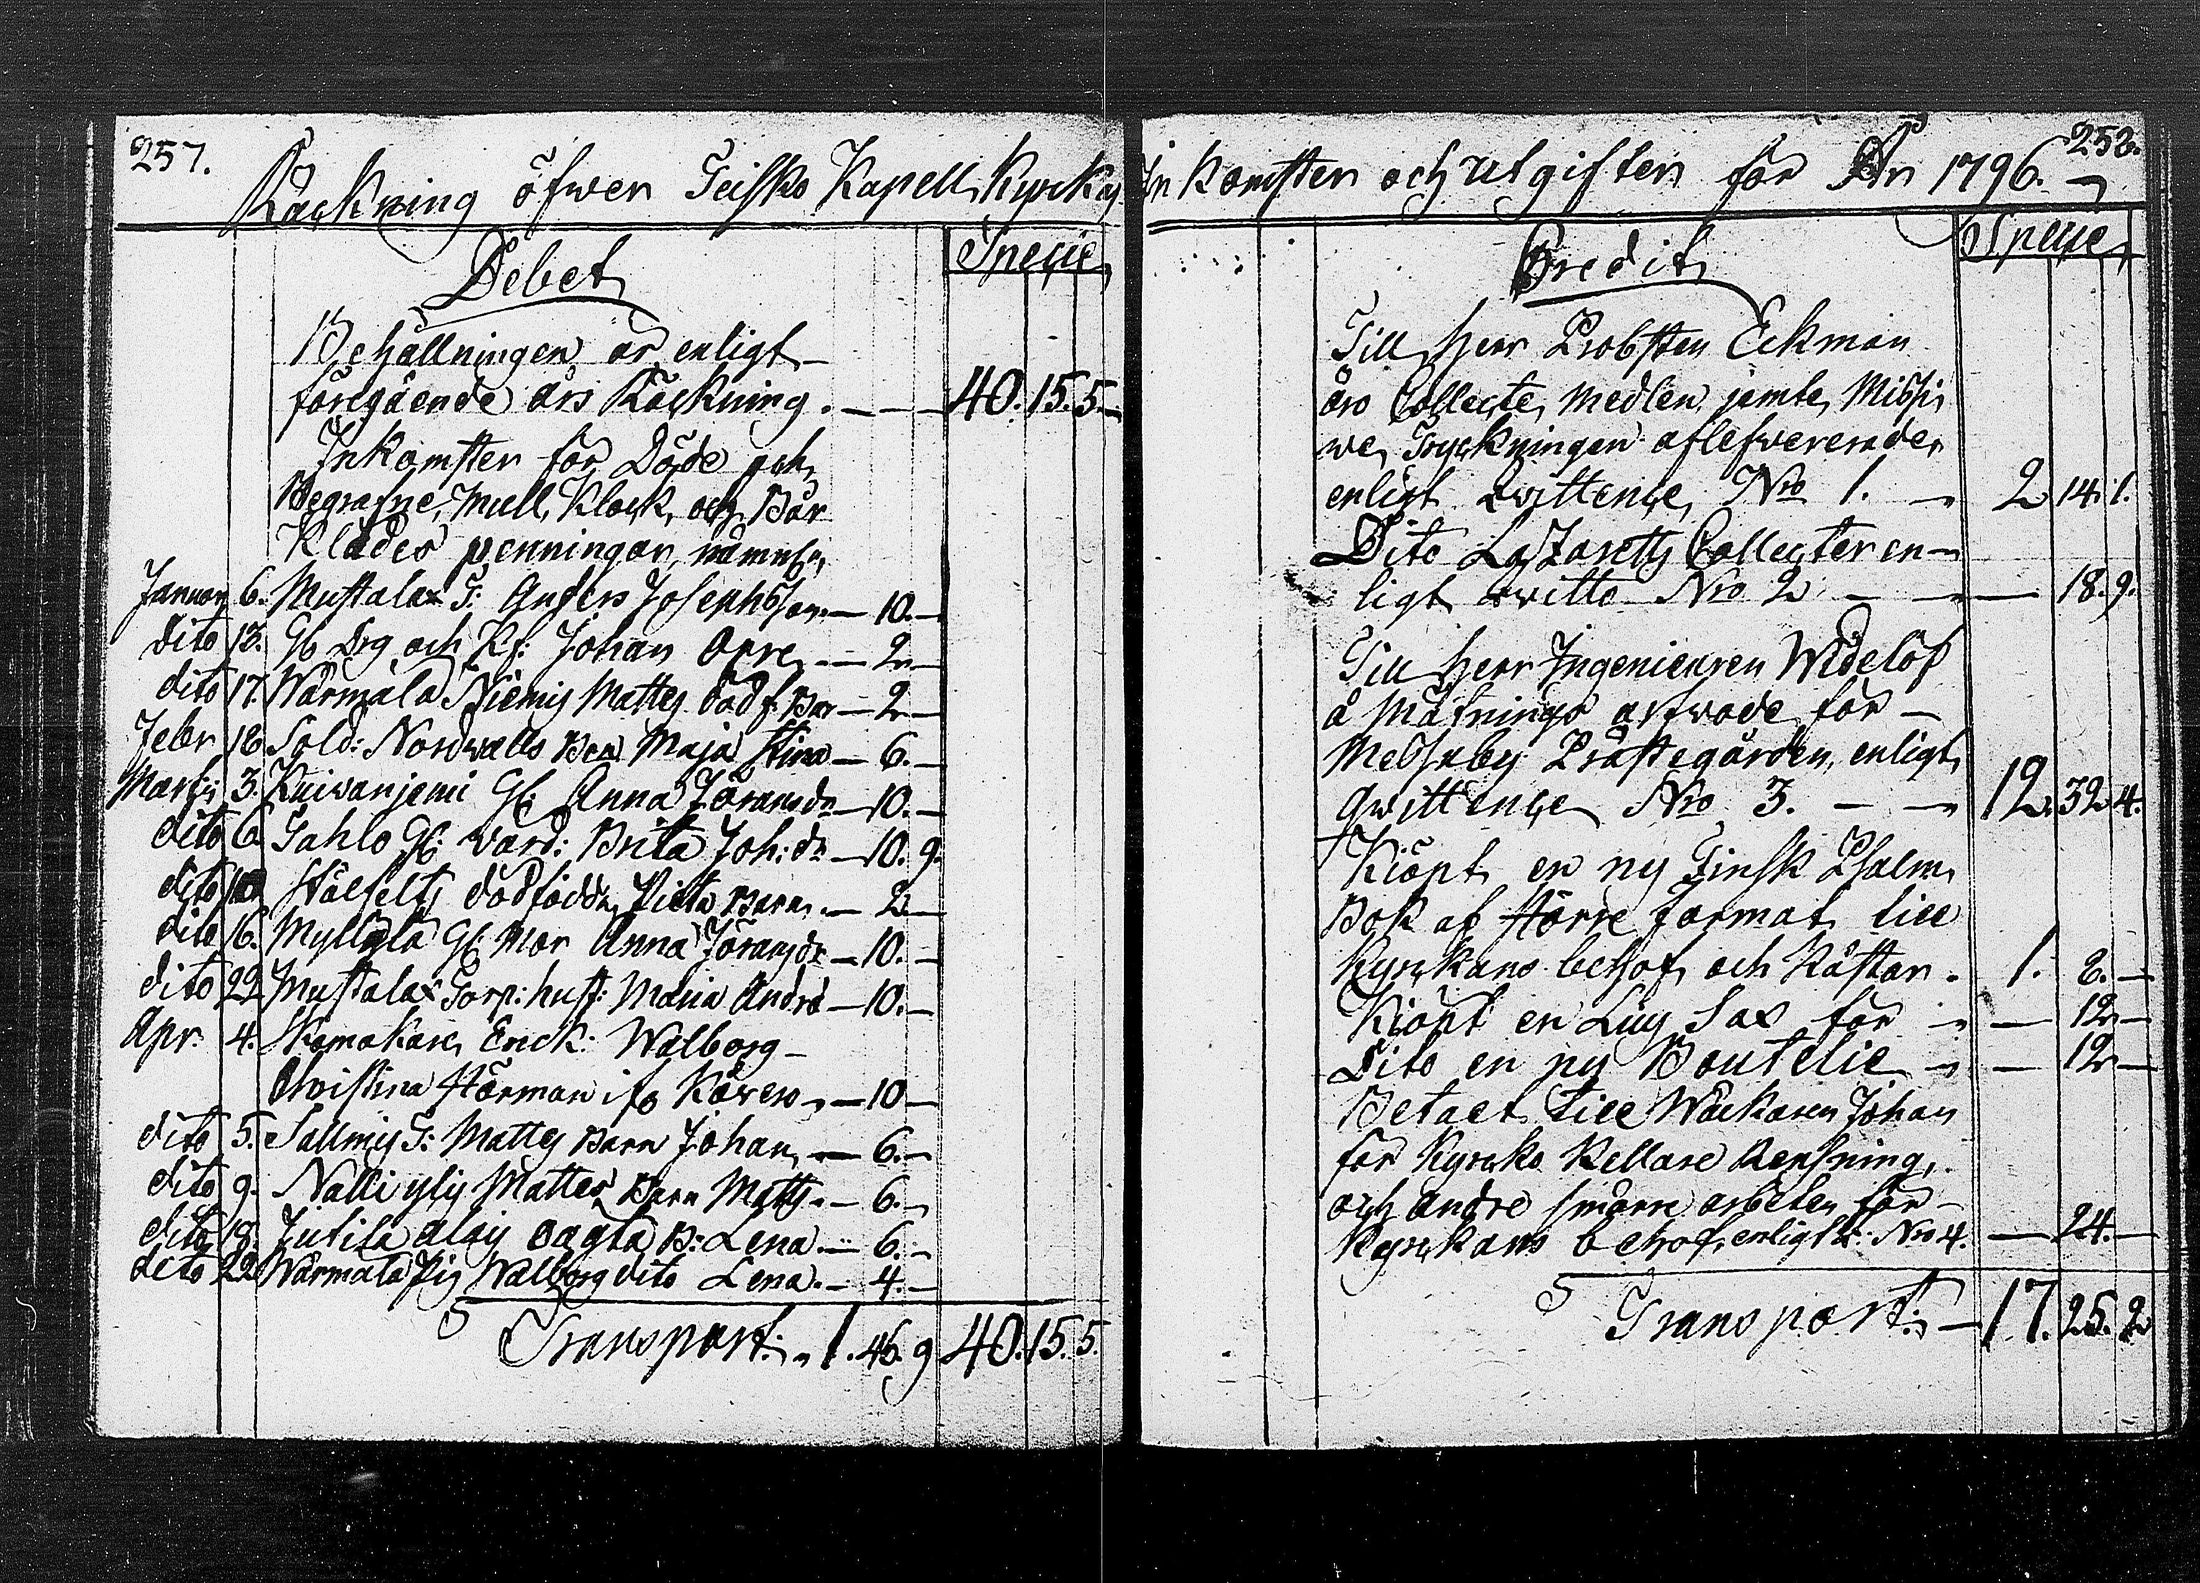 257.
Räckning öfwer Teisko Kapell Kyrckas
Specie
Debet
Behållningen är enligt
föregående års Räckning. — — 40. 15. 5.
Inkomster för Döde och
Begrafne, Mull, Klock, och Bår
Klädes penningar, nämnl:
Januari 6. Mustalax T: Anders Josephsson — 10. —
dito 13. Gb Drg och Rf: Johan Orre — 2. —
dito 17. Wärmälä Niemis Mattes död f. Bar — 2 —
Febr 18 Sold: Nordwalls Barn Maja Stina — 6. —
Martii 3. Kuiwanjemi Gb: Anna Jöransdr — 10. —
dito 6. Sahlo Gb: värd: Brita Joh:dr — 10. 9.
dito 10. Stålfelts dödfödda Barn — 2 —
dito 16. Myllylä Gb: Mor Anna Jöransdr — 10. —
dito 22 Mustalax Torp: hust: Maria Andrd — 10. —
Apr. 4. Skomakare Enck: Walborg
Christina Störman ifr Kawero — 10 —
dito 5. Sallmis T: Mattes Barn Johan — 6. —
dito 9. Nalli ylis Mattes Barn Matts — 6. —
dito 18. Jutila alas B: Lena — 6. —
dito 22 Wärmälä Pig Walborg dito Lena. — 4. —
Transport: 1. 46. 9 40. 15. 5.
258.
Inkomster och Utgifter för År 1796.
Specie
Credit
Till Herr Probsten Eckman
äro Collecte, Medlen jemte Missi
we, Tryckningen aflefwererade
enligt Qwittence Nro 1. — 2 14. 1.
Dito Lazaretts Collecter en-
ligt qwitto Nro 2 — — 18. 9.
Till Herr Ingenieuren Widelöf
å Mätnings arfwode för
Messuby Prästegården, enligt
Qwittence Nro 3. — — 12. 32 4.
Kiöpt en ny Finsk Psalm
Bok af större format till
Kyrckans behof, och Kåstar. 1. 2. —
Kiöpt en Lius Sax för — 12 —
Dito en ny Boutelie — 12 —
Betalt till Wäckaren Johan
för Kyrcko Kellare Rensning,
och andre smärre arbeten för
Kyrckans behof, enligt Nro 4. — 24. —
Transport: — 17. 25. 2